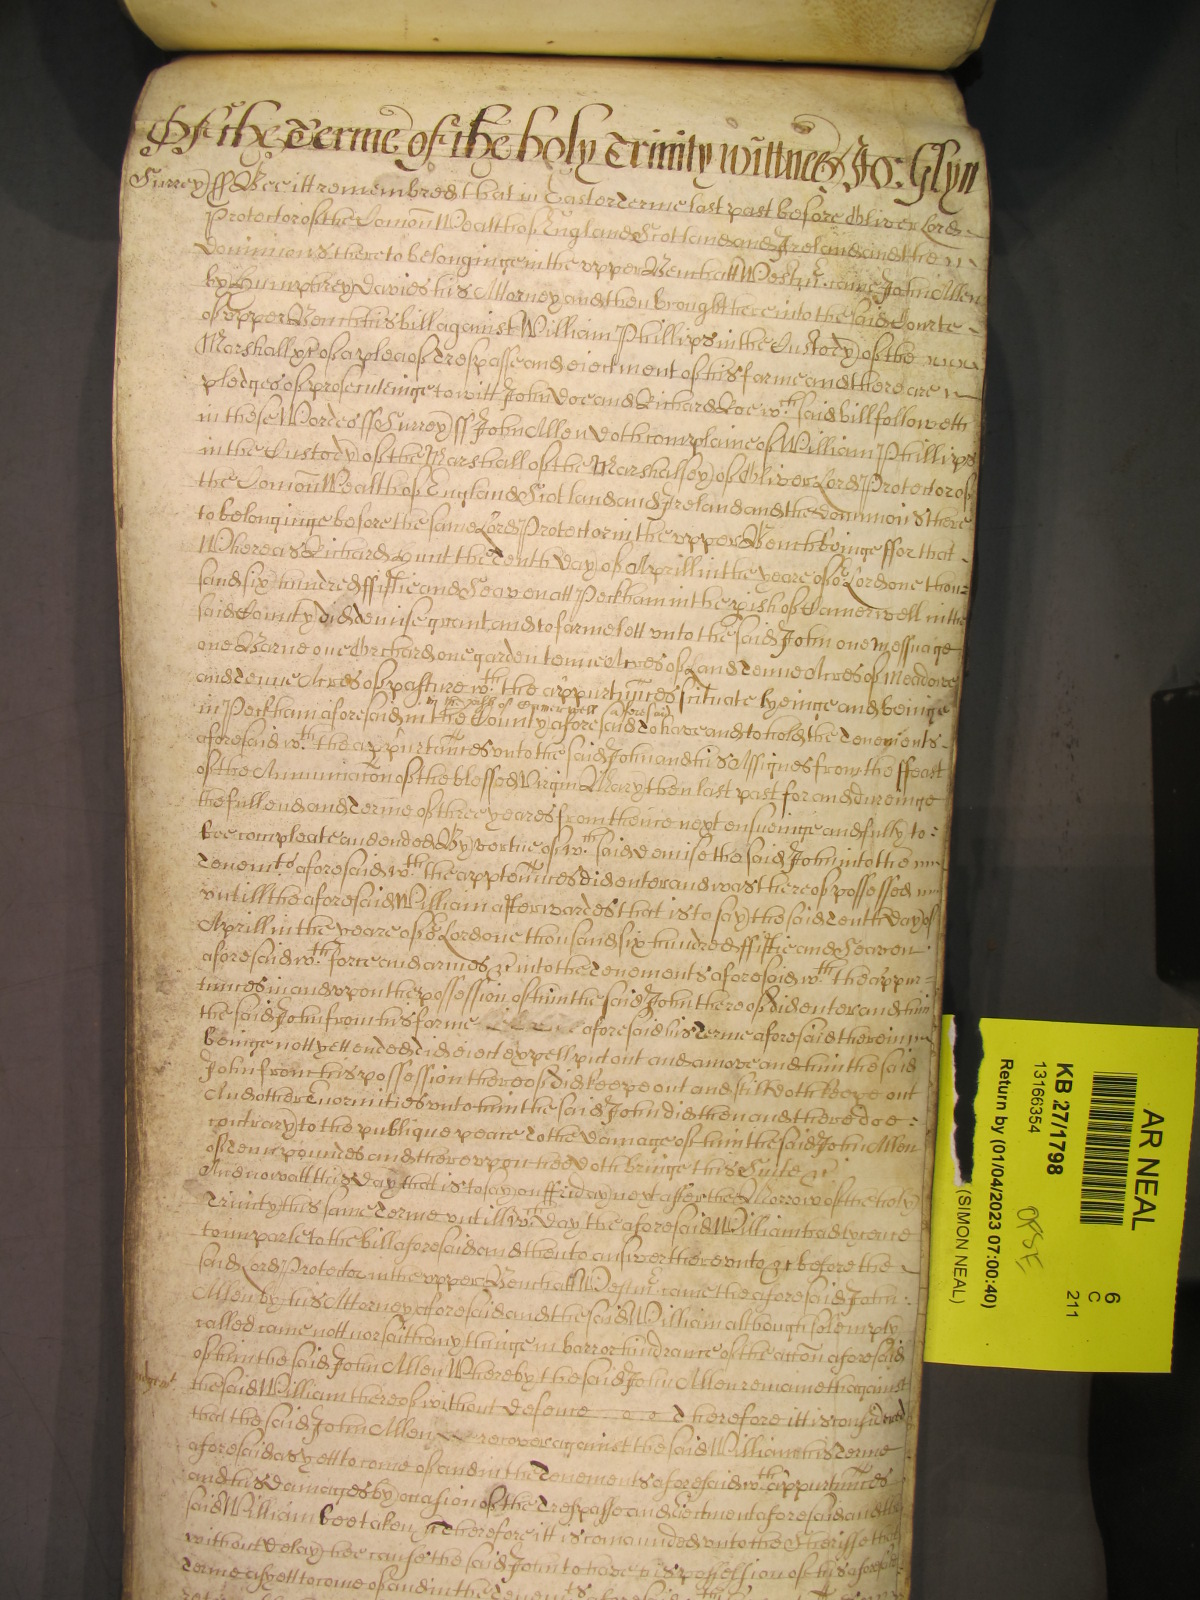 Of the Terme of the holy Trinity wittnes Jo: Glyn
Surrey ss Bee itt remembred that in Easter Terme last past before Oliver Lord
Protector of the Comon Wealth of England Scotland and Ireland and the
Dominions thereto belonginge in the upper Bench att Westmr came John Allen
by Humphrey Davies his Attorney and then brought here into the said Courte
of upper Bench his bill against William Phillips in the Custody of the
Marshall &c of a plea of Trespasse and eiectment of his farme and there are
pledges of prosecuteinge to witt John Doe and Richard Roe wch said bill followeth
in these Wordes ss Surrey ss John Allen doth complaine of William Phillips
in the Custody of the Marshall of the Marshallsey of Oliver Lord Protector of
the Comon Wealth of England Scotland and Ireland and the Dominions there
to belonginge before the same Lord Protector in the upper Bench beinge ffor that
Whereas Richard Hunt the Tenth day of Aprill in the yeare of or Lord one thou=
sand six hundred ffiftie and Seaven att Peckham in the pish of Camerwell in the
said County did demise grant and to farme lett unto the said John one messuage
one Barne one Orchard one garden tenne Acres of Land Tenne Acres of Meadowe
and Tenne Acres of pasture wth the appurtunces scituate lyeinge and beinge
in the pish of Camerwell aforesaid
in Peckham aforesaid in the County aforesaid To have and to hold the Tenements
aforesaid wth the appurtunces unto the said John and his Assignes from the ffeast
of the Annunciacon of the blessed Virgin Mary then last past for and dureinge
the full end and Terme of three yeares from thence next ensueinge and fully to
bee compleate and ended By vertue of wch said demise the said John into the
Tenemts aforesaid wth the apptunces did enter and was thereof possessed
untill the aforesaid William afterwardes that is to say the said Tenth day of
Aprill in the yeare of or Lord one thousand six hundred ffiftie and Seaven
aforesaid wth force and armes &c into the Tenements aforesaid wth the appur=
tunces in and upon the possession of him the said John thereof did enter and him
the said John from his farme aforesaid his Terme aforesaid therein
beinge nott yett ended did eiect expell put out and amove and him the said
John from his possession thereof did keepe out and still doth keepe out
And other Enormities unto him the said John did then and there doe
contrary to the publique peace To the damage of him the said John Allen
of Tenn poundes and thereupon hee doth bringe this Suite &c
And now att this day that is to say on ffriday next after the Morrow of the holy
Trinity this same Terme untill wch day the aforesaid William had lycence
to imparle to the bill aforesaid and then to answer thereunto &c before the
said Lord Protector in the upper Bench att Westmr came the aforesaid John
Allen by his Attorney aforesaid and the said William although solempty
called came nott nor saith any thinge in barr or hindrance of the accon aforesaid
of him the said John Allen Whereby the said John Allen remaineth against
the said William thereof without defence Therefore itt is considered
that the said John Allen recover against the said William his Terme
aforesaid as yett to come of and in the Tenements aforesaid wth appurtunces
and his damages by occasion of the Trespasse and Eiectment aforesaid and the
said William bee taken &c Therefore itt is comaunded unto the Sheriffe that
without delay hee cause the said John to have his possession of his aforesaid
Terme as yett to come of and in the Tenemts aforesaid
AR NEAL
6
C
211
KB 27/1798
13166354
OFSF
Return by (01/04/2023 07:00:40)
(SIMON NEAL)